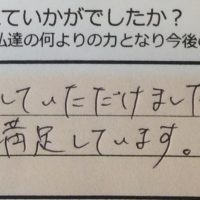 ていかがでしたか？
私達の何よりの力となり今後
していただけました
満足しています。